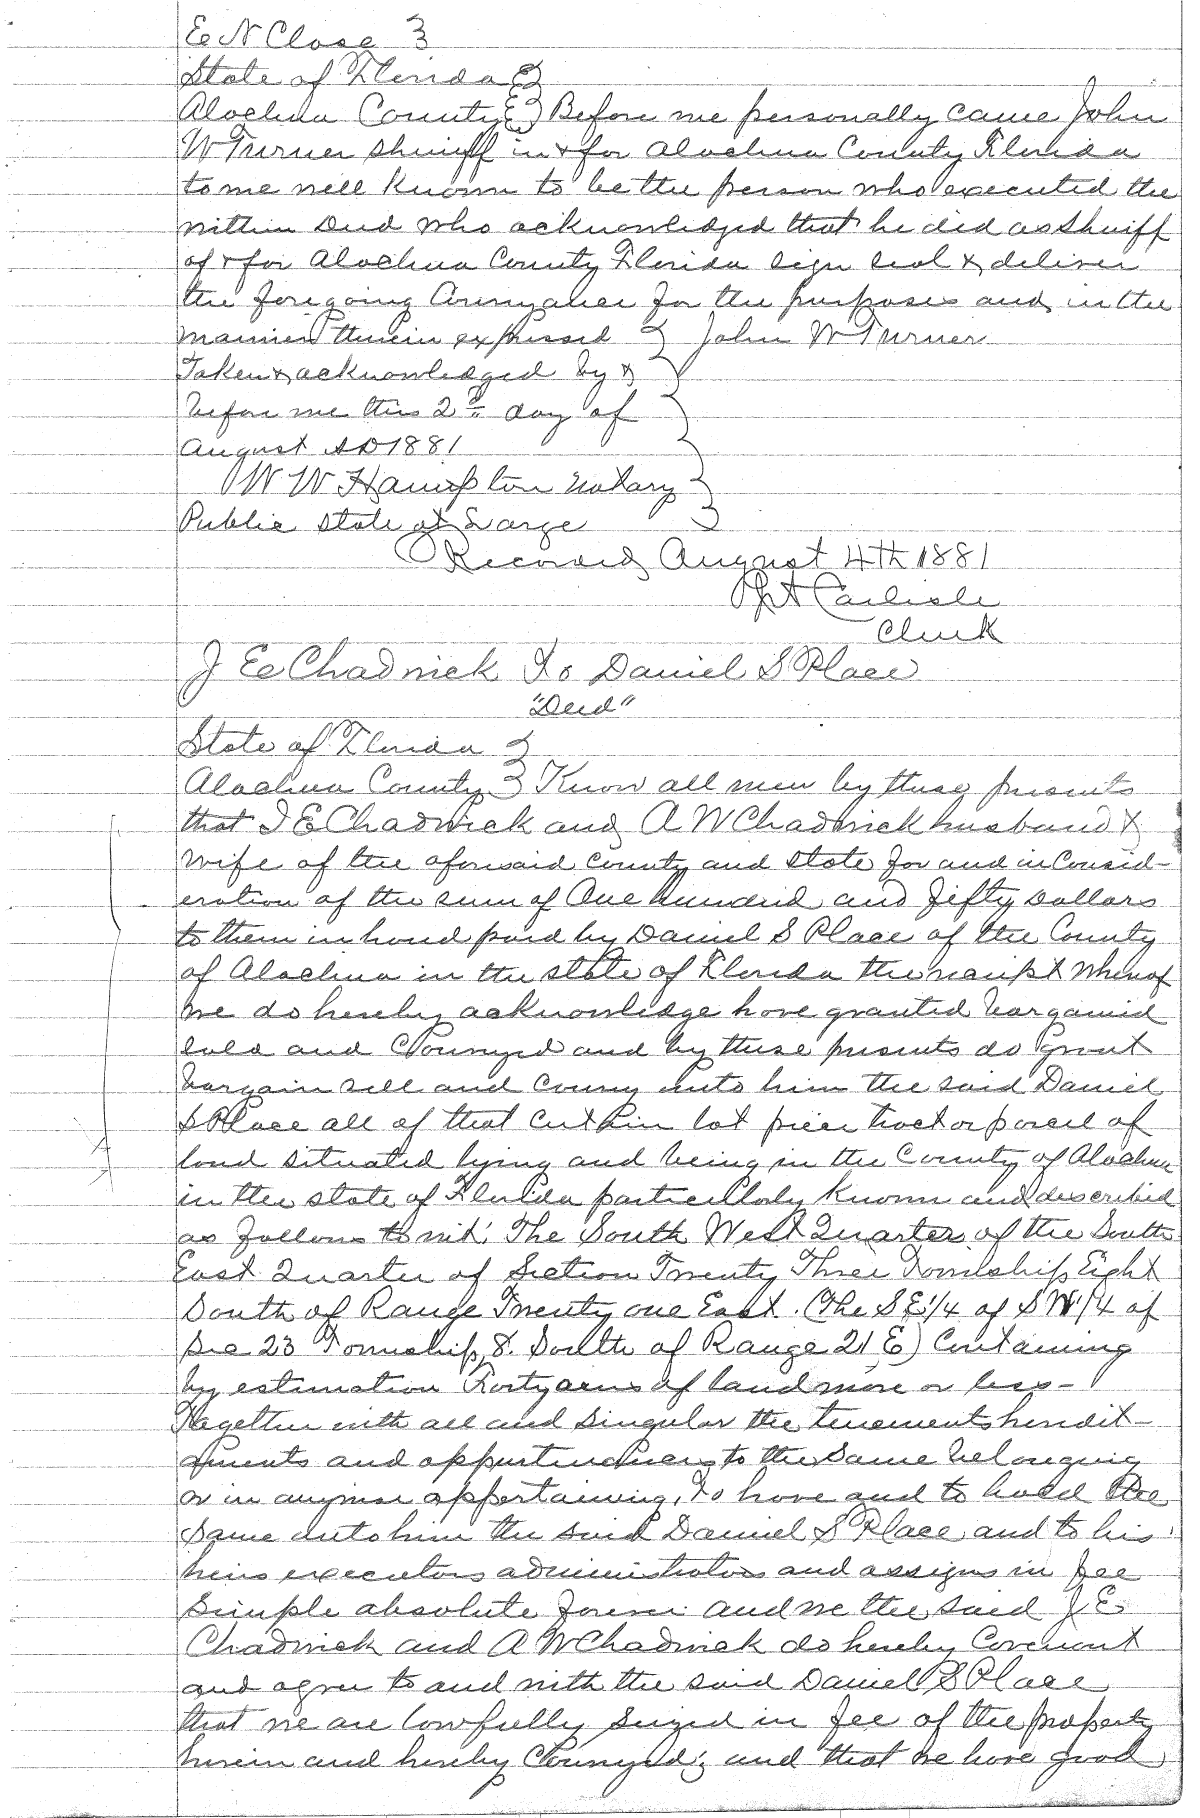 E N Close
State of Florida
Alachua County Before me personally came John
W Turner Sheriff in & for Alachua County Florida
to me well known to be the person who executed the
within Deed who acknowledged that he did as Sheriff
of & for Alachua County Florida sign seal & deliver
the foregoing Conveyance for the purposes and in the
manner therein expressed John W Turner
Taken & acknowledged by &
before me this 2nd day of
August AD 1881
W W Hampton Notary
Public State at Large
Recorded August 4th 1881
Carlisle
Clerk
J E Chadwick To Daniel S Place
"Deed"
State of Florida
Alachua County Know all men by these presents
that J E Chadwick and A W Chadwick husband &
wife of the aforesaid County and State for and in Consid-
eration of the sum of One hundred and fifty Dollars
to them in hand paid by Daniel S Place of the County
of Alachua in the State of Florida the receipt whereof
we do hereby acknowledge have granted bargained
sold and Conveyed and by these presents do grant
bargain sell and convey unto him the said Daniel
S Place all of that certain lot piece tract or parcel of
land situated lying and being in the County of Alachua
in the State of Florida particularly known and described
as follows to wit: The South West Quarter of the South
East Quarter of Section Twenty Three Township Eight
South of Range Twenty one East. (The SE 1/4 of SW 1/4 of
Sec 23 Township 8. South of Range 21 E) Containing
by estimation Forty acres of land more or less-
Together with all and singular the tenements heredit-
aments and appurtenances to the same belonging
or in anywise appertaining, To have and to hold the
same unto him the said Daniel S Place and to his
heirs executors administrators and assigns in fee
simple absolute forever and we the said J E
Chadwick and A W Chadwick do hereby Covenant
and agree to and with the said Daniel S Place
that we are lawfully seized in fee of the property
herein and hereby Conveyed; and that we have good